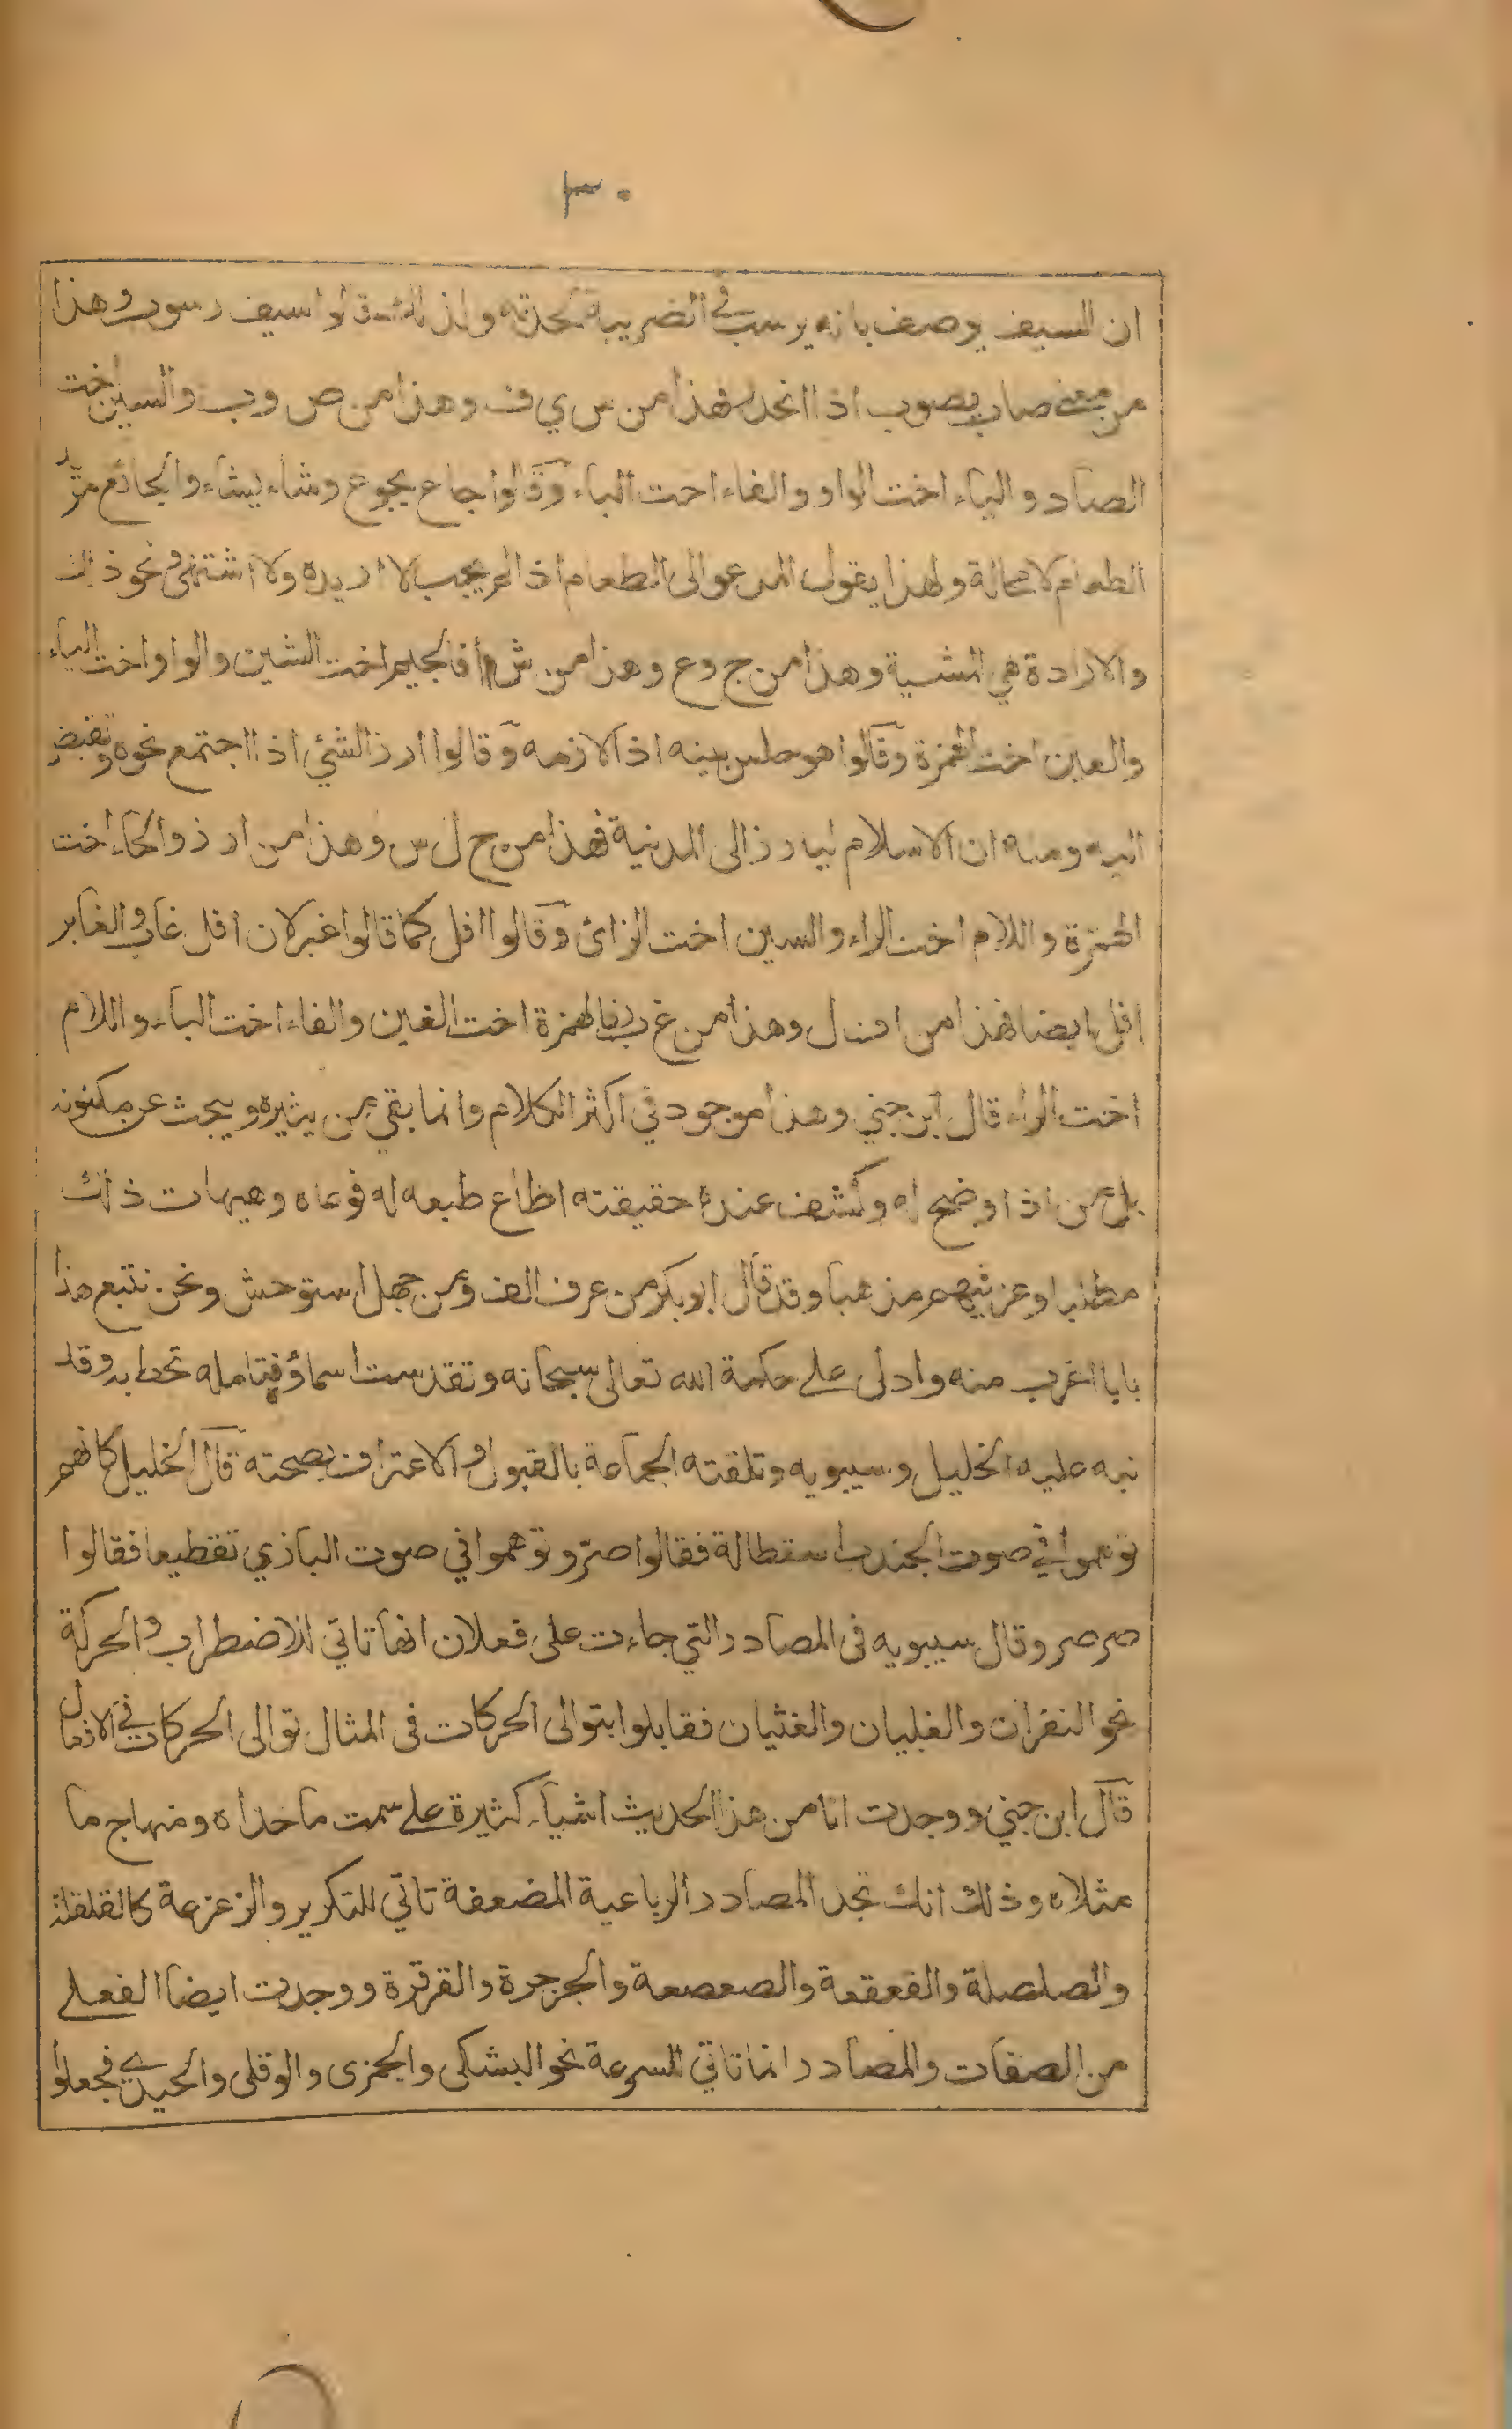 ٣٠
ان السيف يوصف بانه يرسب في الضريبة لحدته ولذلك قالوا سيف رسوب وهذا
من معنى صاب يصوب اذا انحدر فهذا من س ي ف وهذا من ص وب والسين اخت
الصاد والياء اخت الواو والفاء اخت الباء وقالوا جاع يجوع وشاء يشاء والجائع مريد
الطعام لا محالة ولهذا يقول المدعو الى الطعام اذا لم يجب لا اريده ولا اشتهي ونحو ذلك
والارادة هي المشية وهذا من ج وع وهذا من ش أ فالجيم اخت الشين والواو اخت الياء
والعين اخت الهمزة وقالوا هو حلس بيته اذا لازمه وقالوا ارز الشئ اذا اجتمع نحوه وتقبض
اليه ومنه ان الاسلام ليارز الى المدنية فهذا من ح ل س وهذا من ا ر ز والحاء اخت
الهمزة واللام اخت الراء والسين اخت الزائ وقالوا افل كما قالوا غبر لان افل غاب والغابر
افل ايضا فهذا من ا ف ل وهذا من غ ب ر فالهمزة اخت الغين والفاء اخت الباء واللام
اخت الراء قال ابن جني وهذا موجود في اكثر الكلام وانما بقي من يثيره ويبحث عن مكنونه
بل من اذا اوضح له وكشف عنده حقيقته اطاع طبعه له فوعاه وهيهات ذلك
مطلبا وعز فيهم مذهبا وقد قال ابو بكر من عرف الف ومن جهل استوحش ونحن نتبع هذا
بابا اغرب منه وادلى على حكمة الله تعالى سبحانه وتقدست اسماؤه فتامله تحط به وقد
نبه عليه الخليل وسيبويه وتلقته الجماعة بالقبول والاعتراف بصحته قال الخليل كانهم
توهموا في صوت الجندب استطالة فقالوا صرّ وتوهموا في صوت البازي تقطيعا فقالوا
صرصر وقال سيبويه فى المصادر التي جاءت على فعلان انها تاتي للاضطراب والحركة
نحو النفزان والغليان والغثيان فقابلوا بتوالى الحركات فى المثال توالى الحركات في الافعال
قال ابن جني ووجدت انا من هذا الحديث اشياء كثيرة على سمت ما حداه ومنهاج ما
مثلاه وذلك انك تجد المصادر الرباعية المضعفة تاتي للتكرير والزعزعة كالقلقلة
والصلصلة والقعقعة والصعصعة والجرجرة والقرقرة ووجدت ايضا الفعلى
من الصفات والمصادر انما تاتي للسرعة نحو البشكى والجمزى والولقى والحيدى فجعلوا